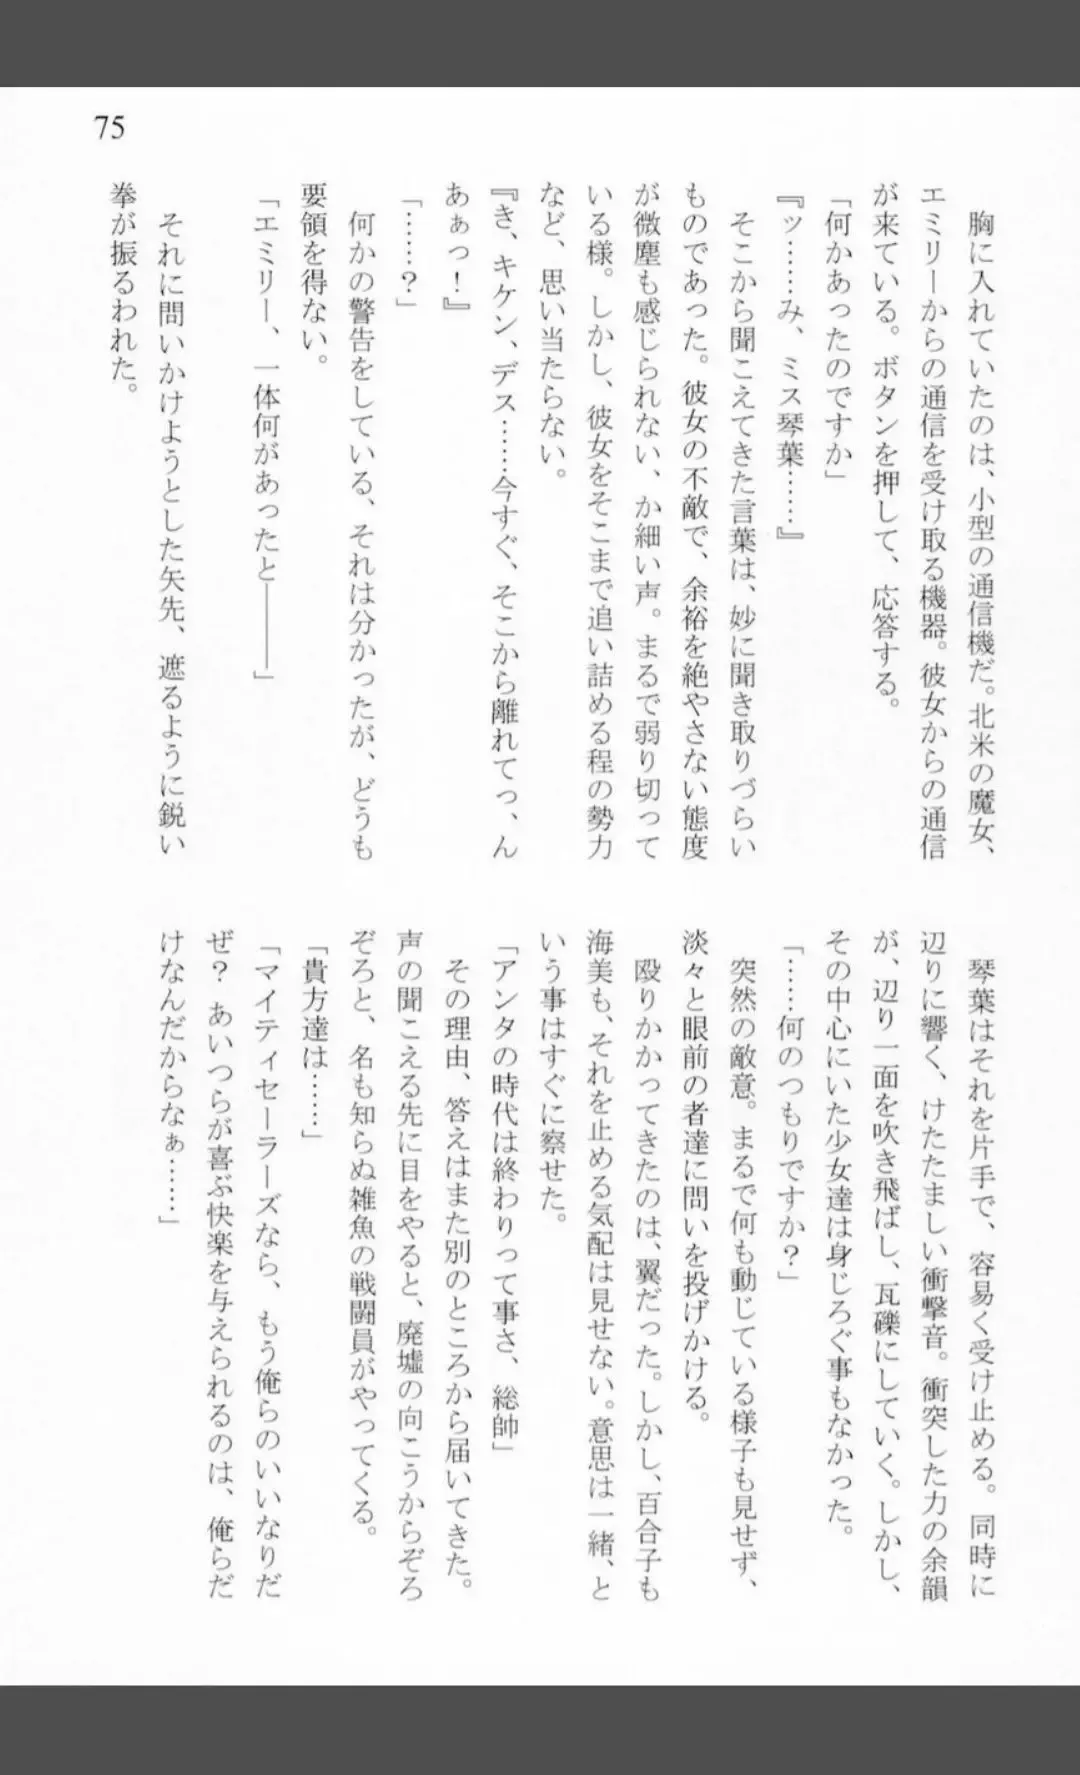 75
　胸に入れていたのは、小型の通信機だ。北米の魔女、
エミリーからの通信を受け取る機器。彼女からの通信
が来ている。ボタンを押して、応答する。
「何かあったのですか」
『ッ……み、ミス琴葉……』
　そこから聞こえてきた言葉は、妙に聞き取りづらい
ものであった。彼女の不敵で、余裕を絶やさない態度
が微塵も感じられない、か細い声。まるで弱り切って
いる様。しかし、彼女をそこまで追い詰める程の勢力
など、思い当たらない。
『き、キケン、デス……今すぐ、そこから離れてっ、ん
あぁっ！』
「……？」
　何かの警告をしている、それは分かったが、どうも
要領を得ない。
「エミリー、一体何があったと――――」
　それに問いかけようとした矢先、遮るように鋭い
拳が振るわれた。
　琴葉はそれを片手で、容易く受け止める。同時に
辺りに響く、けたたましい衝撃音。衝突した力の余韻
が、辺り一面を吹き飛ばし、瓦礫にしていく。しかし、
その中心にいた少女達は身じろぐ事もなかった。
「……何のつもりですか？」
　突然の敵意。まるで何も動じている様子も見せず、
淡々と眼前の者達に問いを投げかける。
　殴りかかってきたのは、翼だった。しかし、百合子も
海美も、それを止める気配は見せない。意思は一緒、と
いう事はすぐに察せた。
「アンタの時代は終わりって事さ、総帥」
　その理由、答えはまた別のところから届いてきた。
声の聞こえる先に目をやると、廃墟の向こうからぞろ
ぞろと、名も知らぬ雑魚の戦闘員がやってくる。
「貴方達は……」
「マイティセーラーズなら、もう俺らのいいなりだ
ぜ？ あいつらが喜ぶ快楽を与えられるのは、俺らだ
けなんだからなぁ……」